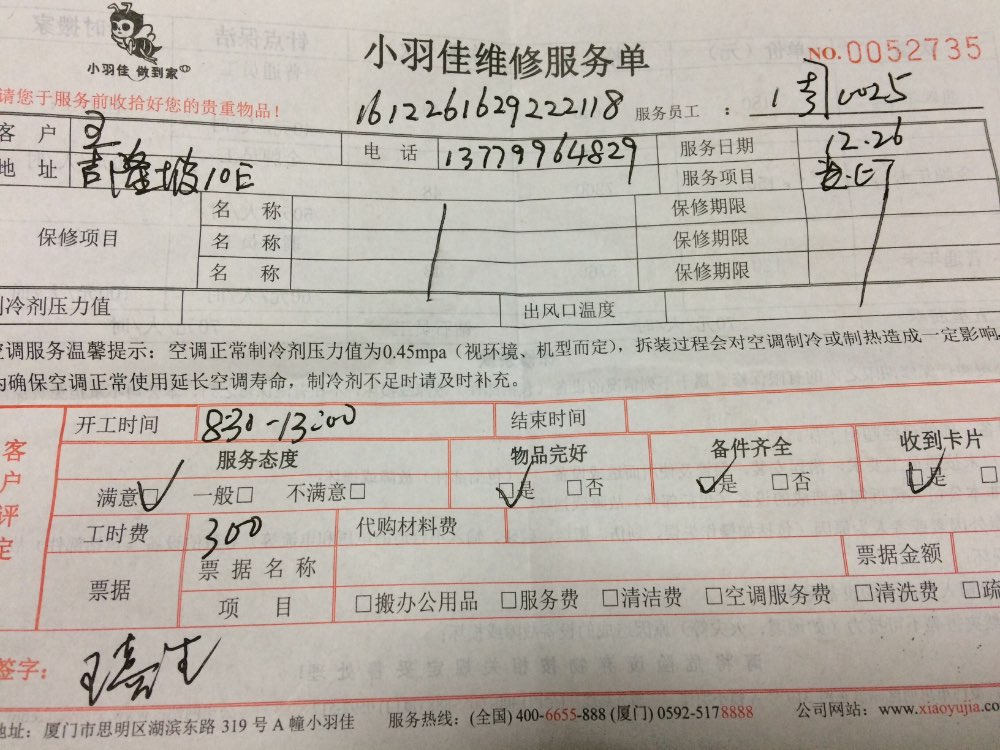 小羽佳维修服务单
NO.0052735
小羽佳 做到家
请您于服务前收拾好您的贵重物品！
1612261629222118
服务员工 ： 0025
客 户 王 电 话 13779964829 服务日期 12.26
地 址 吉隆坡10E 服务项目
保修项目 名 称 保修期限
名 称 保修期限
名 称 保修期限
制冷剂压力值 出风口温度
空调服务温馨提示：空调正常制冷剂压力值为0.45mpa（视环境、机型而定），拆装过程会对空调制冷或制热造成一定影响
为确保空调正常使用延长空调寿命，制冷剂不足时请及时补充。
客户评定
开工时间 830-13:00 结束时间
服务态度 物品完好 备件齐全 收到卡片
满意□ 一般□ 不满意□ □是 □否 □是 □否 □是 □
工时费 300 代购材料费
票据 票据名称 票据金额
项 目 □搬办公用品 □服务费 □清洁费 □空调服务费 □清洗费 □疏
签字：
地址：厦门市思明区湖滨东路 319 号 A 幢小羽佳 服务热线：(全国) 400-6655-888 (厦门) 0592-5178888 公司网站：www.xiaoyujia.co